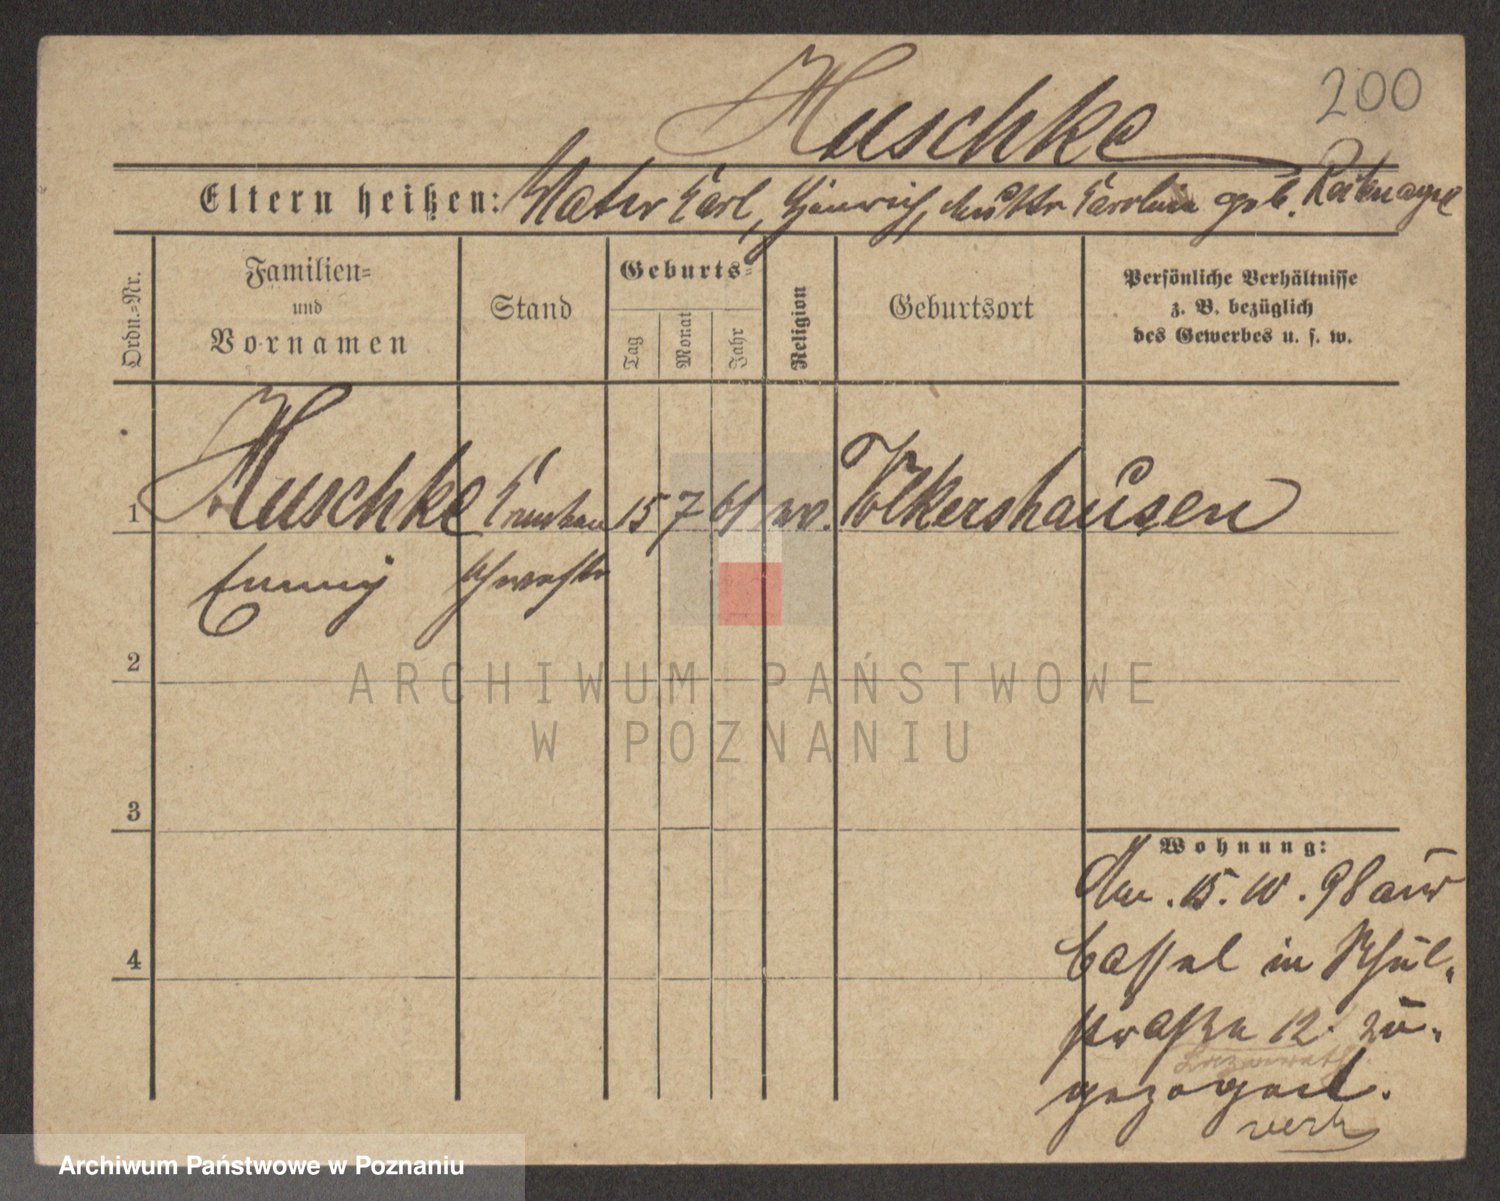 200
Huschke
Eltern heißen: Vater Carl, Heinrich, Mutter Carolin geb.
Ordn.=Nr.
Familien=
und
Vornamen
Stand
Geburts=
Tag
Monat
Jahr
Religion
Geburtsort
Persönliche Verhältnisse
z. B. bezüglich
des Gewerbes u. s. w.
1 Huschke 15 7 61 ev. Völkershausen
Emmy schwester
2
ARCHIWUM PAŃSTWOWE
W POZNANIU
3
Wohnung:
Am. 15. 10. 98 aus
4
Cassel in Schul-
straße 12. zu-
gezogen.
verh
Archiwum Państwowe w Poznaniu